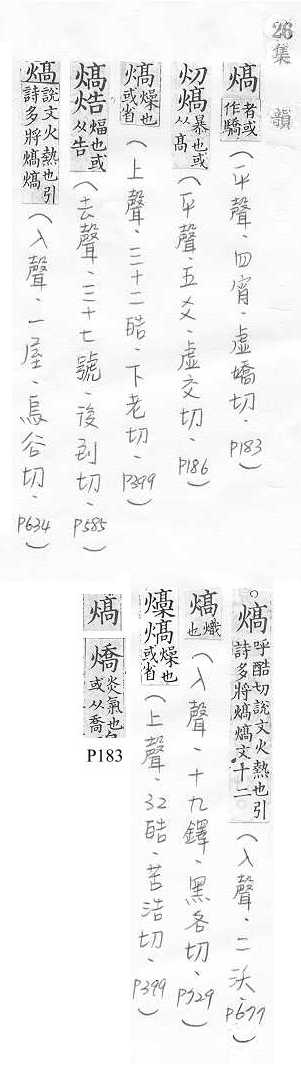 26
集
韻
熇 者或作驕（平聲、四宵、虛嬌切、P183）
灱熇 暴也或从高（平聲、五爻、虛交切、P186）
熇 燥也或省（上聲、三十二皓、下老切、P399）
熇焅 煏也或从告（去聲、三十七號、後到切、P585）
熇 說文火熱也引詩多將熇熇（入聲、一屋、烏谷切、P634）
熇 呼酷切說文火熱也引詩多將熇熇文十二（入聲、二沃、P677）
熇 熾也（入聲、十九鐸、黑各切、P729）
燺熇 燥也或省（上聲、32皓、苦浩切、P399）
熇
燆 炎氣也或从喬
P183